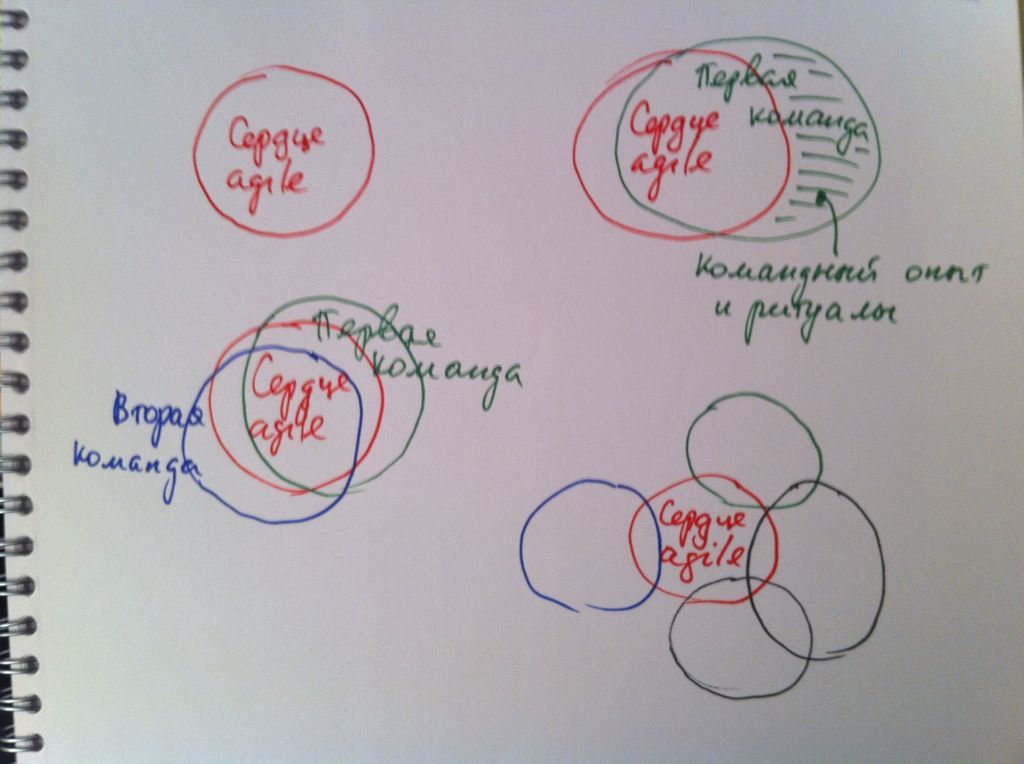 Сердце
agile
Первая
команда
Сердце
agile
Командный опыт
и ритуалы
Первая
команда
Сердце
agile
Вторая
команда
Сердце
agile